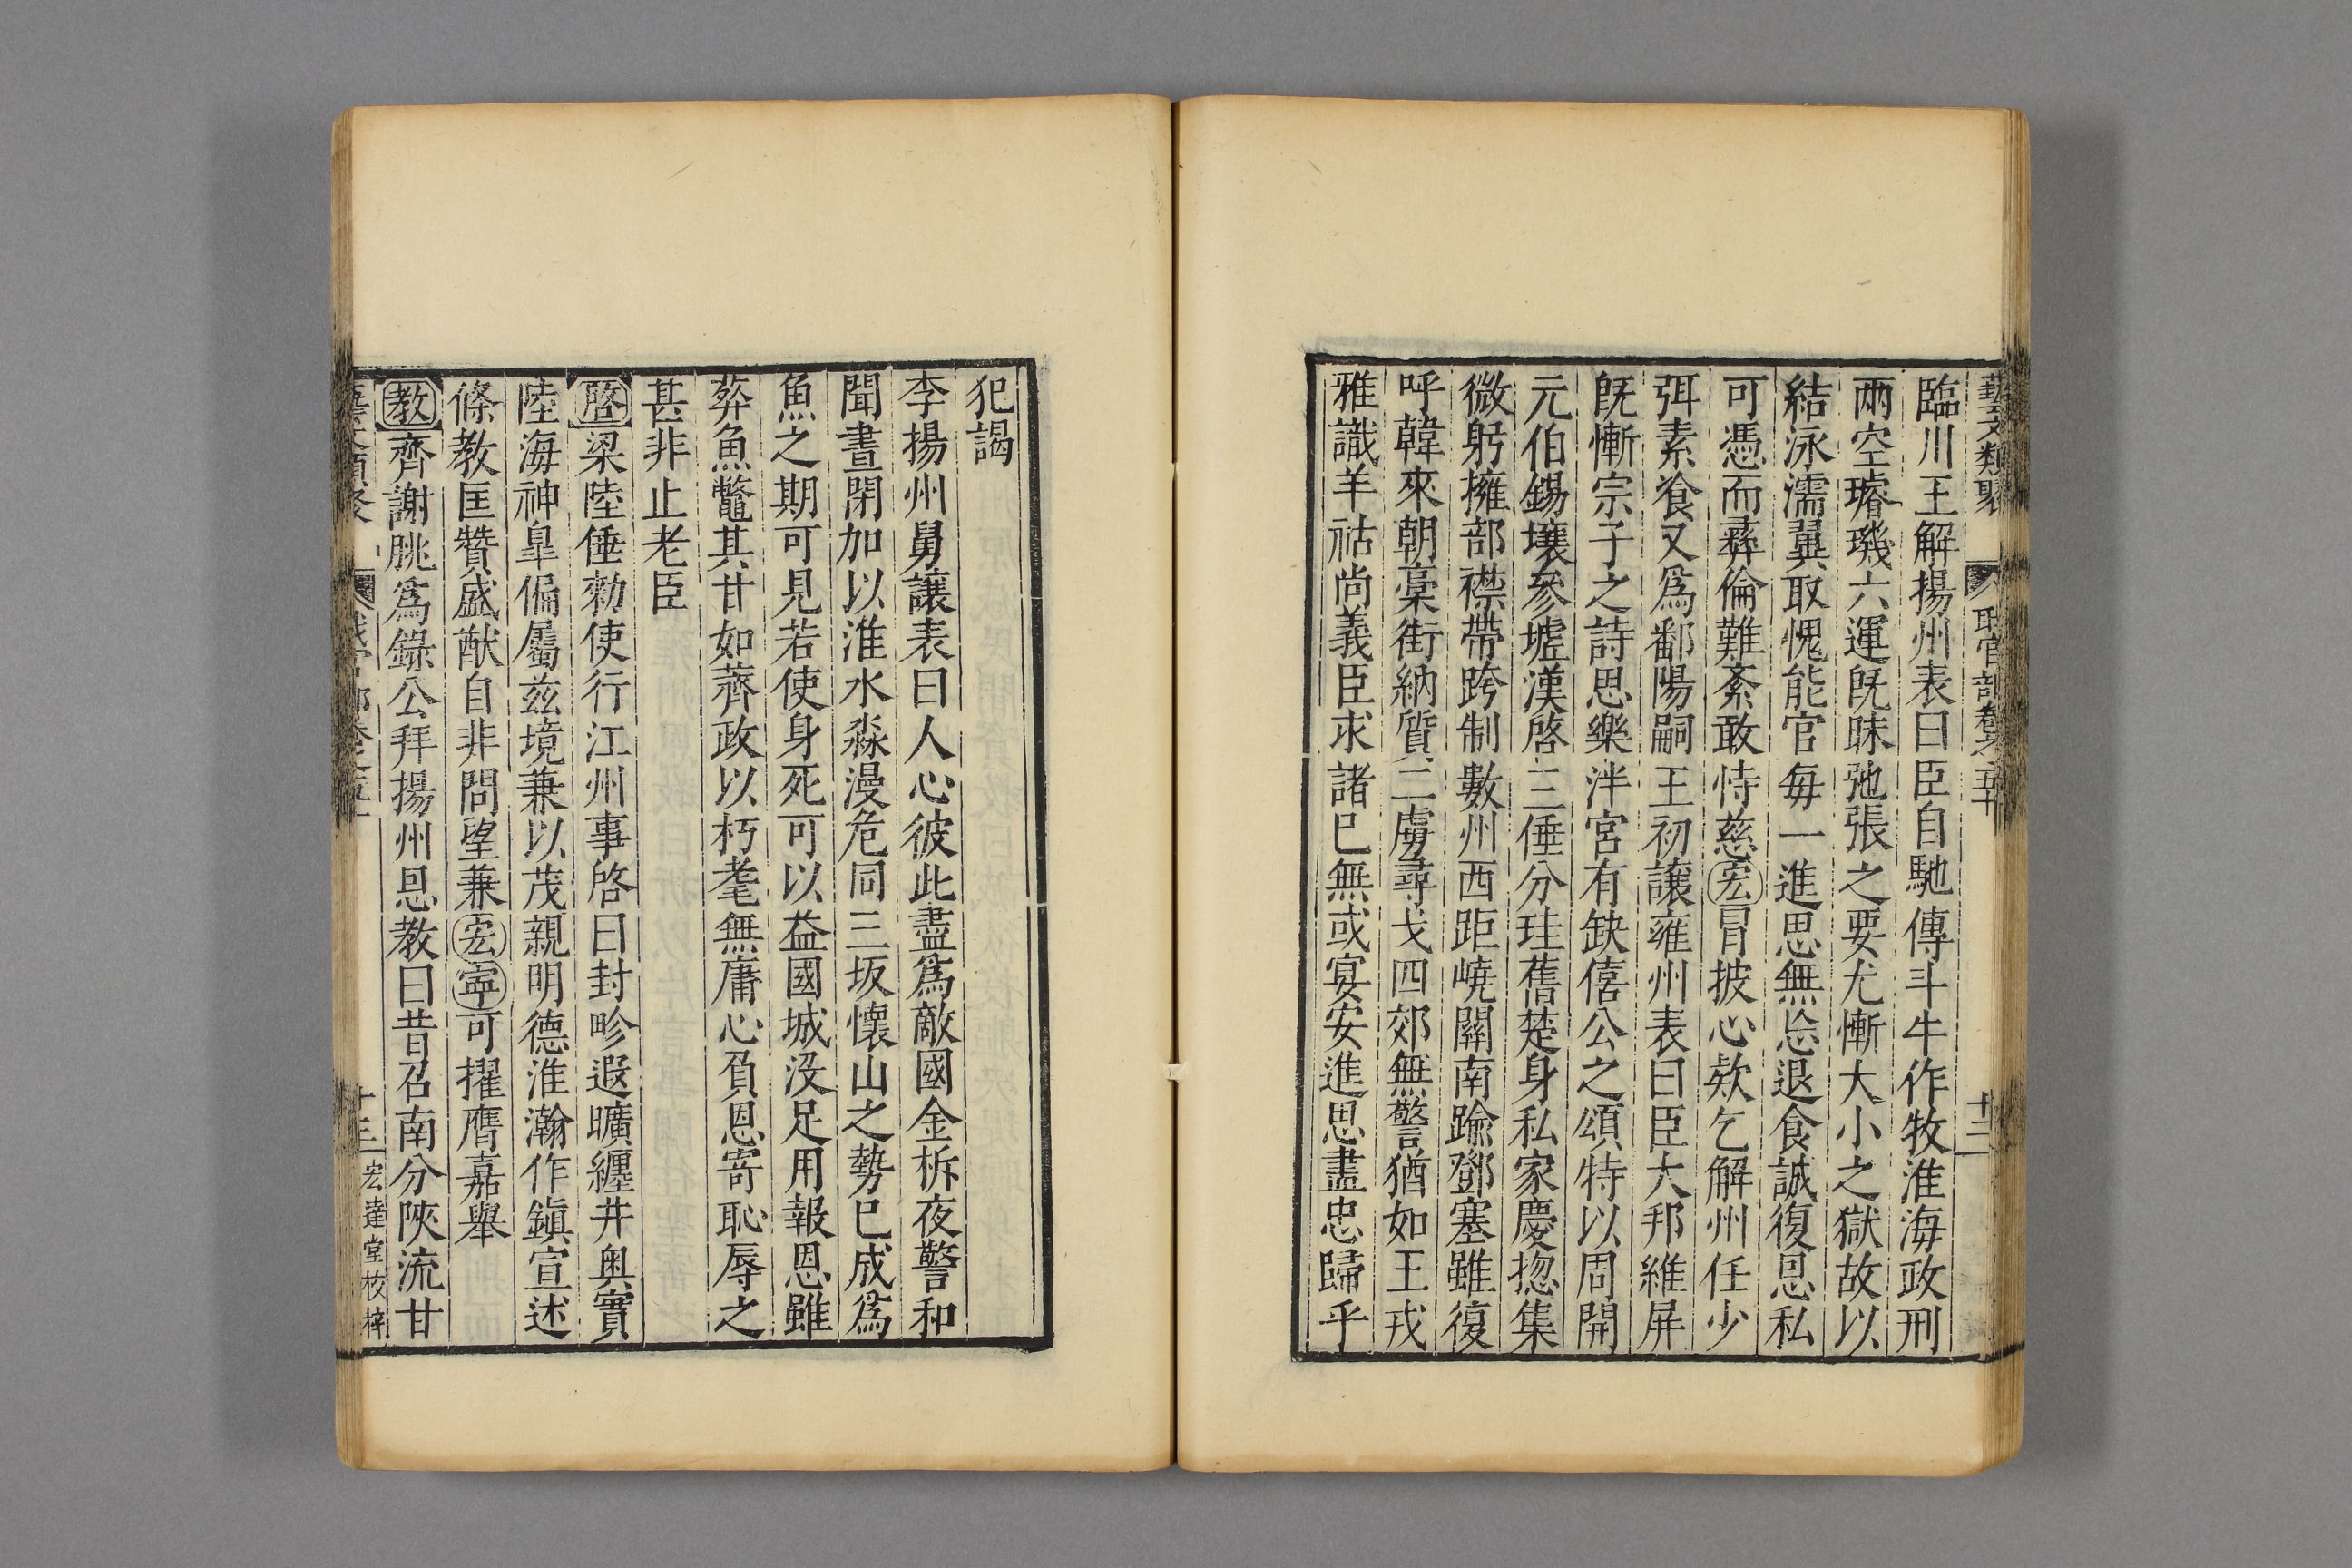 藝文類聚 職官部卷之五十 十二
臨川王解揚州表曰臣自馳傳斗牛作牧淮海政刑
兩空璿璣六運旣昧弛張之要尤慚大小之獄故以
結泳濡翼取愧能官每一進思無忘退食誠復恩私
可憑而彞倫難紊敢恃慈宏冒披心欵乞解州任少
弭素飡又爲鄱陽嗣王初讓雍州表曰臣大邦維屏
旣慚宗子之詩思樂泮宮有缺僖公之頌特以周開
元伯錫壤參墟漢啓三倕分珪舊楚身私家慶揔集
微躬擁部襟帶跨制數州西距嶢關南踰鄧塞雖復
呼韓來朝藁街納質二虜尋戈四郊無警猶如王戎
雅識羊祜尚義臣求諸已無或宴安進思盡忠歸乎
犯謁
李揚州舅讓表曰人心彼此盡爲敵國金柝夜警和
聞晝閉加以淮水淼漫危同三坂懷山之勢已成爲
魚之期可見若使身死可以益國城没足用報恩雖
葬魚鼈其甘如薺政以朽耄無庸心負恩寄恥辱之
甚非止老臣
啓梁陸倕勑使行江州事啓曰封畛遐曠纏井奥實
陸海神皐偏屬兹境兼以茂親明德淮瀚作鎭宣述
條教匡贊盛猷自非問望兼宏寧可擢膺嘉舉
教齊謝朓爲錄公拜揚州恩教曰昔召南分陝流甘
十三 宏達堂校梓